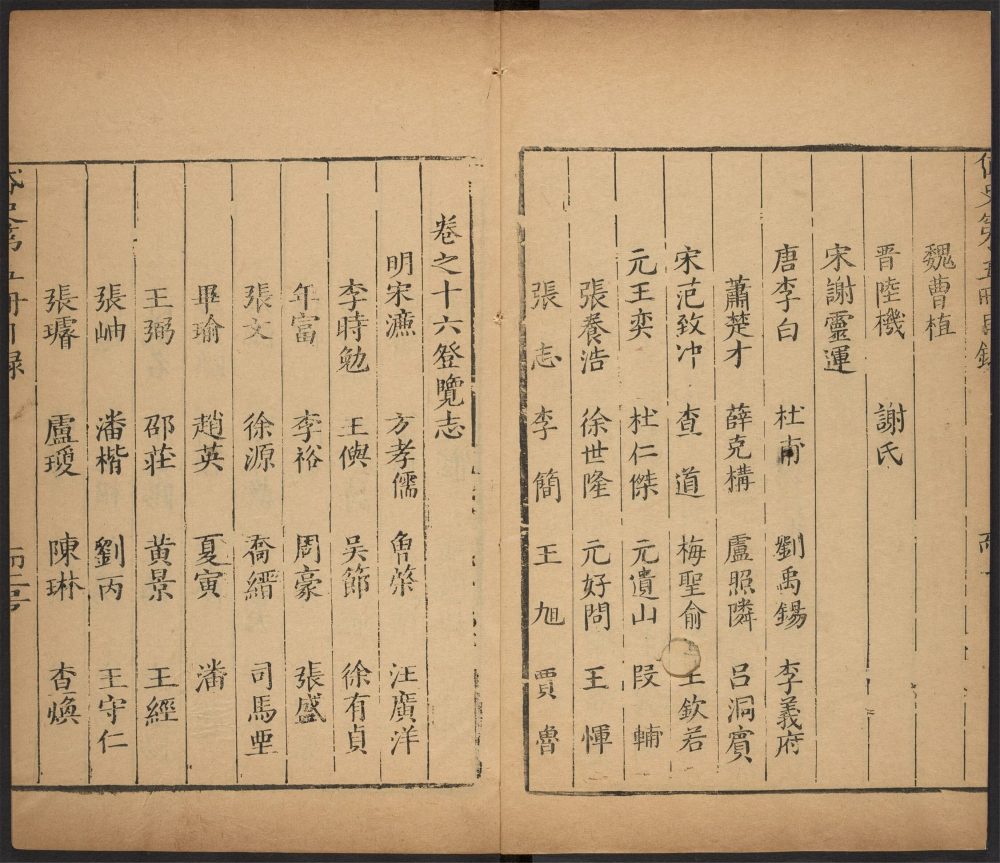 魏曹植
晋陸機 謝氏
宋謝靈運
唐李白 杜甫 劉禹錫 李義府
蕭楚才 薛克構 盧照隣 呂洞賓
宋范致冲 查道 梅聖俞 王欽若
元王奕 杜仁傑 元遺山 段輔
張養浩 徐世隆 元好問 王惲
張志 李簡 王旭 賈魯
卷之十六登覽志
明宋濂 方孝儒 魯棨 汪廣洋
李時勉 王偀 吴節 徐有貞
年富 李裕 周豪 張盛
張文 徐源 喬縉 司馬垔
畢瑜 趙英 夏寅 潘
王弼 邵莊 黄景 王經
張岫 潘楷 劉丙 王守仁
張璿 盧瑷 陳琳 查煥